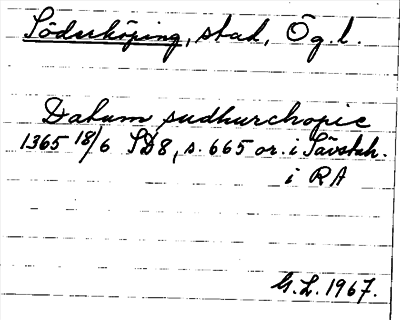 Söderköping, stad, Ög.l.
Datum sudhurchopie
1365 18/6 SD8, s. 665 or. i Sävstah.
i RA
G.L. 1967.